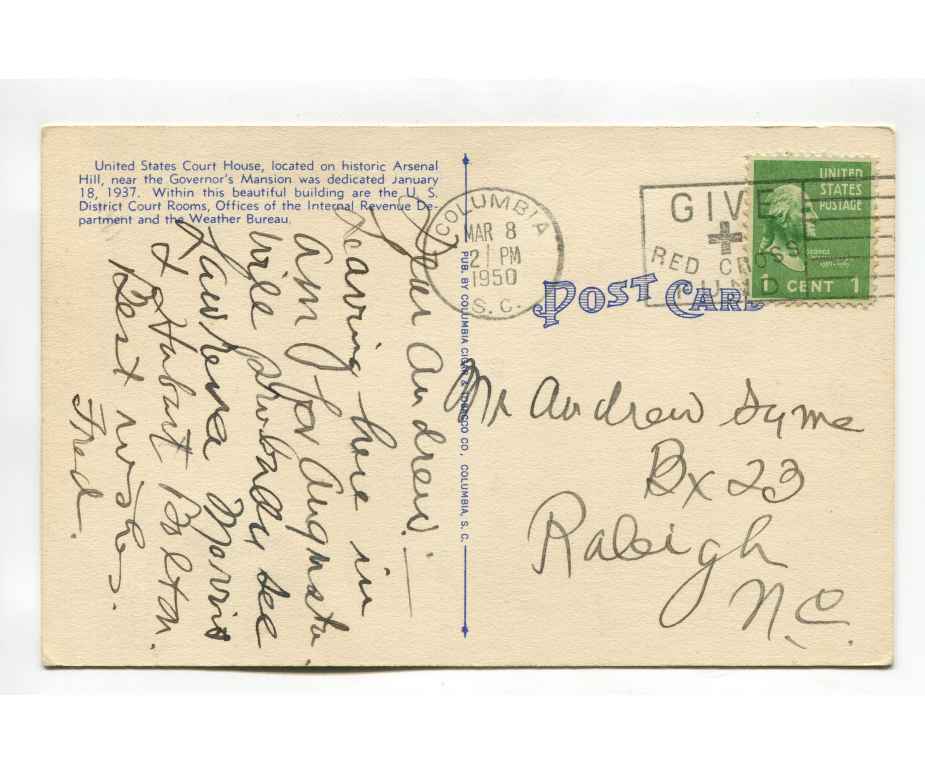 United States Court House, located on historic Arsenal
Hill, near the Governor's Mansion was dedicated January
18, 1937. Within this beautiful building are the U. S.
District Court Rooms, Offices of the Internal Revenue De-
partment and the Weather Bureau.
Dear Andrew:—
Leaving here in
am for Augusta.
Will Sunbadu see
Lawrence Morris
& Hubart Bolton.
Best wishes.
Fred.
PUB. BY COLUMBIA CIGAR & TOBACCO CO., COLUMBIA, S. C.
COLUMBIA
MAR 8
2 PM
1950
S. C.
GIVE
RED CROSS
FUND
UNITED
STATES
POSTAGE
1 CENT 1
POST CARD
Mr Andrew Syme
Bx 23
Raleigh
N.C.